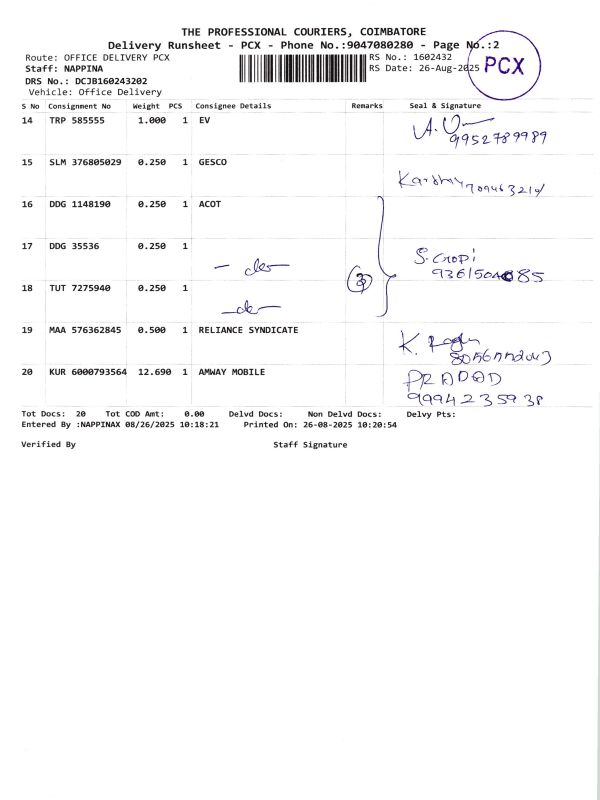 THE PROFESSIONAL COURIERS, COIMBATORE
Delivery Runsheet - PCX - Phone No.:9047080280 - Page No.:2
Route: OFFICE DELIVERY PCX RS No.: 1602432
Staff: NAPPINA RS Date: 26-Aug-2025 PCX
DRS No.: DCJB160243202
Vehicle: Office Delivery
S No Consignment No Weight PCS Consignee Details Remarks Seal & Signature
14 TRP 585555 1.000 1 EV
9952789989
15 SLM 376805029 0.250 1 GESCO
16 DDG 1148190 0.250 1 ACOT
17 DDG 35536 0.250 1
S. Gopi
18 TUT 7275940 0.250 1
3
19 MAA 576362845 0.500 1 RELIANCE SYNDICATE
K.
20 KUR 6000793564 12.690 1 AMWAY MOBILE
9994235938
Tot Docs: 20 Tot COD Amt: 0.00 Delvd Docs: Non Delvd Docs: Delvy Pts:
Entered By :NAPPINAX 08/26/2025 10:18:21 Printed On: 26-08-2025 10:20:54
Verified By Staff Signature